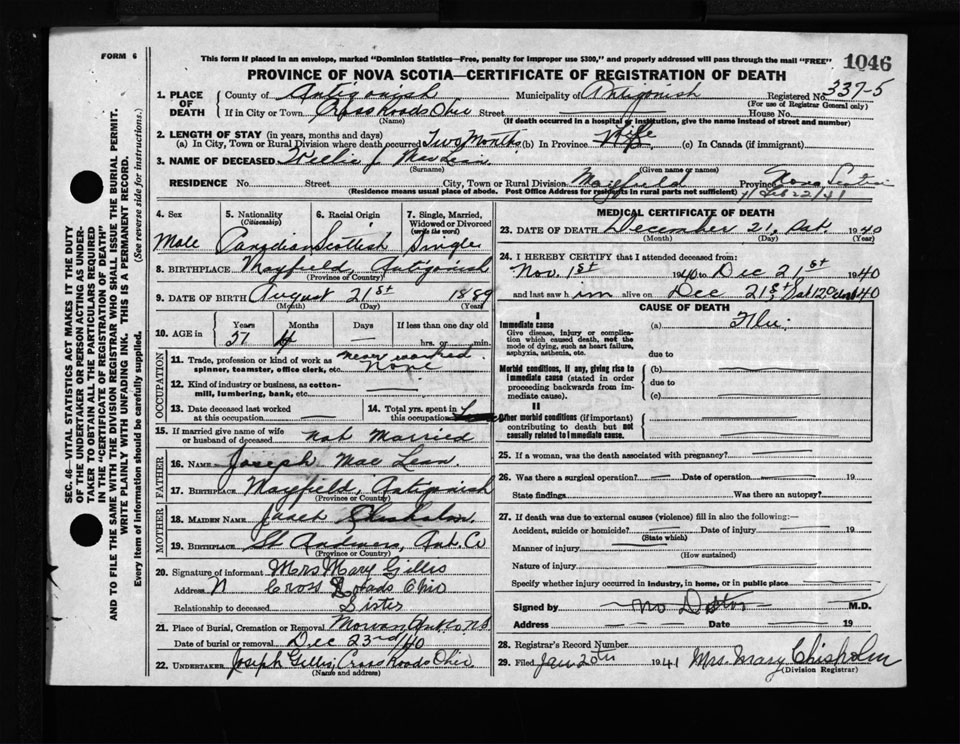 FORM 6
This form if placed in an envelope, marked "Dominion Statistics—Free, penalty for improper use $300," and properly addressed will pass through the mail "FREE"
1046
PROVINCE OF NOVA SCOTIA—CERTIFICATE OF REGISTRATION OF DEATH
SEC. 46—VITAL STATISTICS ACT MAKES IT THE DUTY
OF THE UNDERTAKER OR PERSON ACTING AS UNDER-
TAKER TO OBTAIN ALL THE PARTICULARS REQUIRED
IN THE "CERTIFICATE OF REGISTRATION OF DEATH"
AND TO FILE THE SAME WITH THE DIVISION REGISTRAR WHO SHALL ISSUE THE BURIAL PERMIT.
WRITE PLAINLY WITH UNFADING INK. THIS IS A PERMANENT RECORD.
Every item of information should be carefully supplied. (See reverse side for instructions.)
1. PLACE OF DEATH County of Antigonish Municipality of Antigonish Registered No. 337-5
(For use of Registrar General only)
If in City or Town Cross Roads Ohio Street House No.
(Name) (If death occurred in a hospital or institution, give the name instead of street and number)
2. LENGTH OF STAY (in years, months and days)
(a) In City, Town or Rural Division where death occurred Two Months (b) In Province Life (c) In Canada (if immigrant)
3. NAME OF DECEASED Willie J. MacLean
(Surname) (Given name or names)
RESIDENCE No. Street City, Town or Rural Division Mayfield Province Nova Scotia
(Residence means usual place of abode. Post Office Address for residents in rural parts not sufficient) Feb 22/41
4. Sex 5. Nationality (Citizenship) 6. Racial Origin 7. Single, Married, Widowed or Divorced (write the word)
Male Canadian Scottish Single
8. BIRTHPLACE Mayfield, Antigonish
(Province or Country)
9. DATE OF BIRTH August 21st 1889
(Month) (Day) (Year)
10. AGE in Years Months Days If less than one day old
51 4 — hrs. or min.
OCCUPATION
11. Trade, profession or kind of work as spinner, teamster, office clerk, etc. never worked none
12. Kind of industry or business, as cotton-mill, lumbering, bank, etc.
13. Date deceased last worked at this occupation
14. Total yrs. spent in this occupation
15. If married give name of wife or husband of deceased not Married
FATHER
16. NAME Joseph Mac Lean.
17. BIRTHPLACE Mayfield, Antigonish
(Province or Country)
MOTHER
18. MAIDEN NAME Janet Chisholm.
19. BIRTHPLACE St Andrews, Ant. Co
(Province or Country)
20. Signature of informant Mrs Mary Gillis
Address Cross Roads Ohio
Relationship to deceased Sister
21. Place of Burial, Cremation or Removal
Date of burial or removal Dec 23rd/40
22. UNDERTAKER Joseph Gillis, Cross Roads Ohio
(Name and address)
MEDICAL CERTIFICATE OF DEATH
23. DATE OF DEATH December 21, Sat. 1940
(Month) (Day) (Year)
24. I HEREBY CERTIFY that I attended deceased from:
Nov. 1st 1940 to Dec 21st 1940
and last saw him alive on Dec 21st Sat 12 1940
CAUSE OF DEATH
I
Immediate cause
Give disease, injury or complication which caused death, not the mode of dying, such as heart failure, asphyxia, asthenia, etc.
(a) Flu.
due to
Morbid conditions, if any, giving rise to immediate cause (stated in order proceeding backwards from immediate cause).
(b)
due to
(c)
II
Other morbid conditions (if important) contributing to death but not causally related to immediate cause.
25. If a woman, was the death associated with pregnancy?
26. Was there a surgical operation? Date of operation 19
State findings Was there an autopsy?
27. If death was due to external causes (violence) fill in also the following:—
Accident, suicide or homicide? Date of injury 19
(State which)
Manner of injury
(How sustained)
Nature of injury
Specify whether injury occurred in industry, in home, or in public place
Signed by no Doctor M.D.
Address Date 19
28. Registrar's Record Number
29. Filed Jan 20th 1941 Mrs. Mary Chisholm
(Division Registrar)